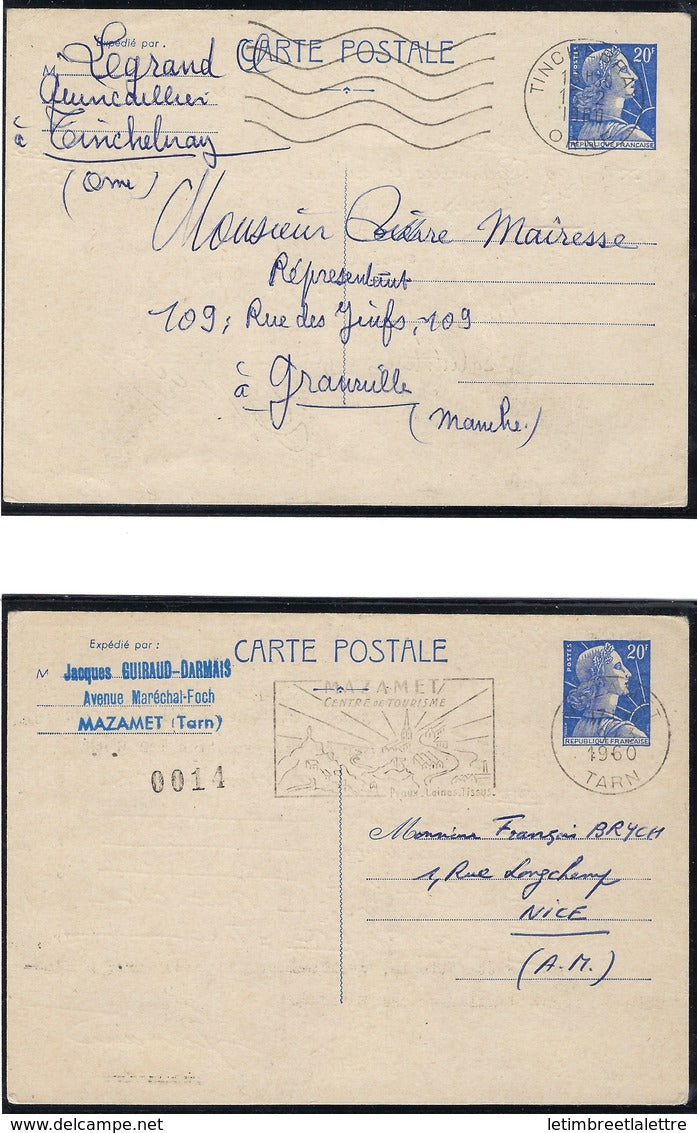 Expédié par :
CARTE POSTALE
M Legrand
Quincaillier
à Tinchebray
(Orne)
20F
POSTES
REPUBLIQUE FRANÇAISE
Monsieur Pierre Mairesse
Représentant
109, Rue des Juifs, 109
à Granville
(Manche)
Expédié par :
CARTE POSTALE
M Jacques GUIRAUD-DARMAIS
Avenue Maréchal-Foch
MAZAMET (Tarn)
0014
MAZAMET
CENTRE DE TOURISME
Peaux. Laines. Tissus.
20F
POSTES
REPUBLIQUE FRANÇAISE
1960
TARN
Monsieur François BRYCH
1, Rue Longchamp
NICE
(A.M.)
delcampe.net
letimbreetlalettre